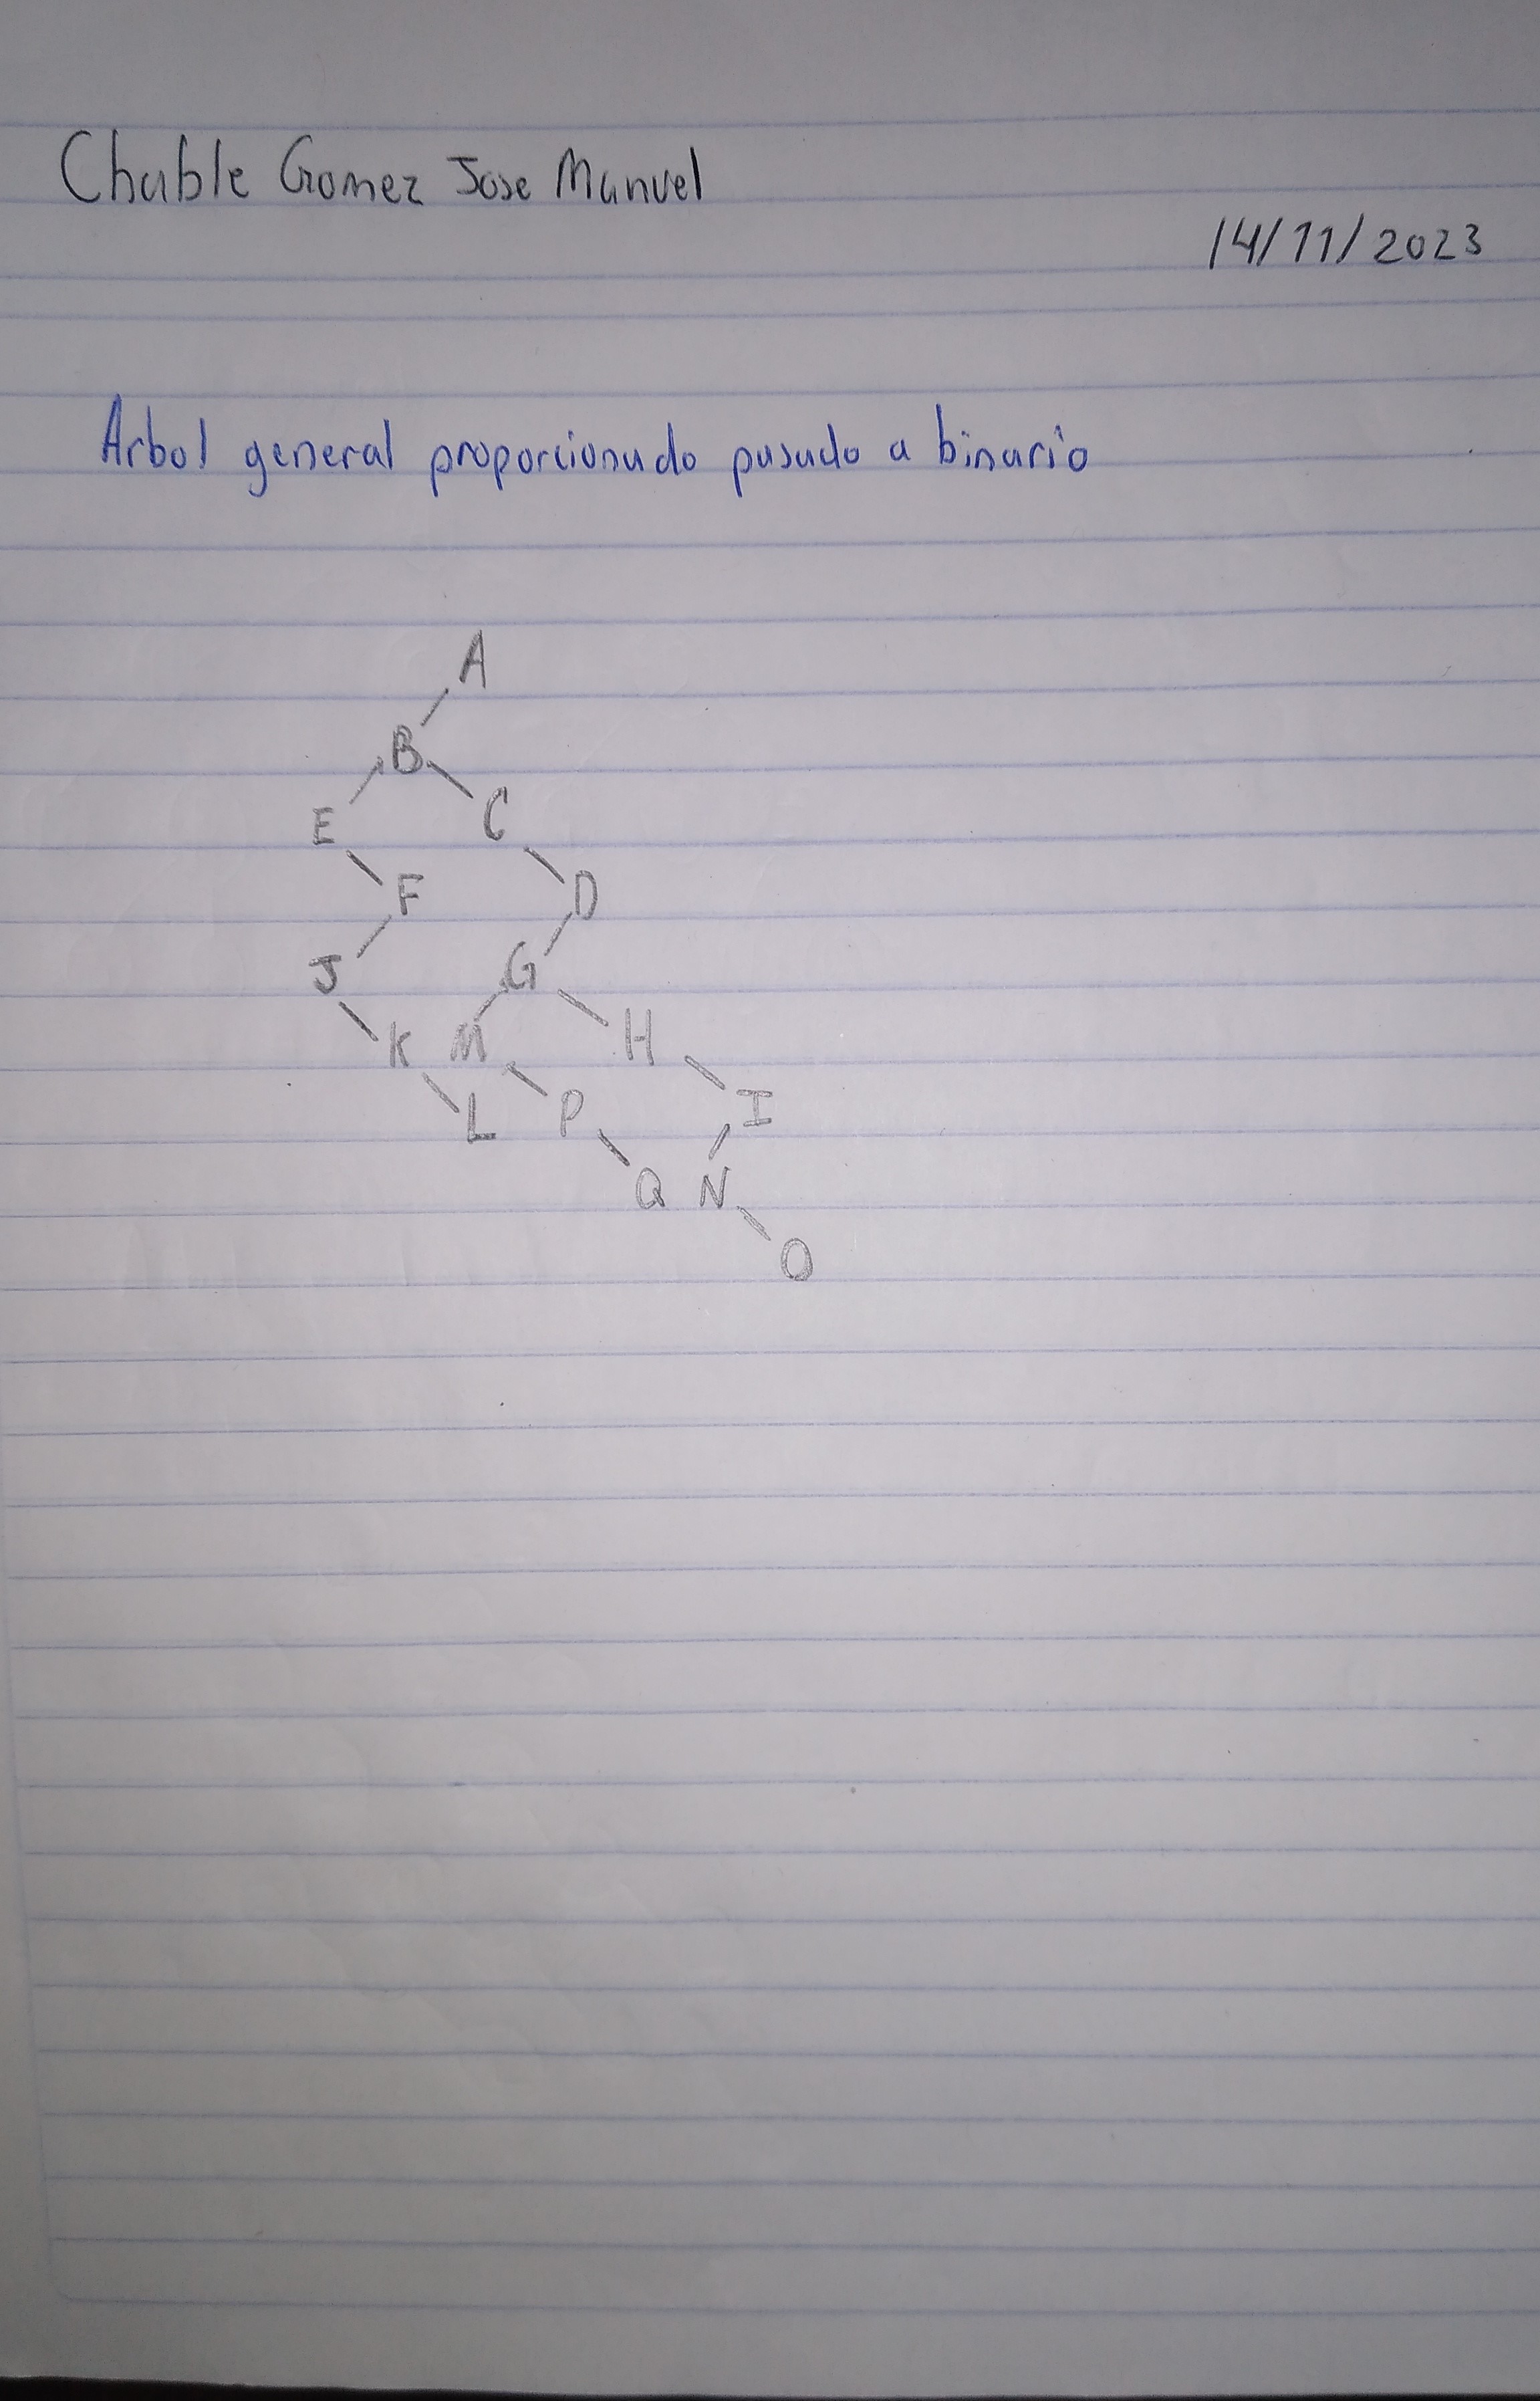 Chable Gomez Jose Manuel
14/11/2023
Arbol general proporcionado pasado a binario
A
B
E C
F D
J G
K M H
L P I
Q N
O